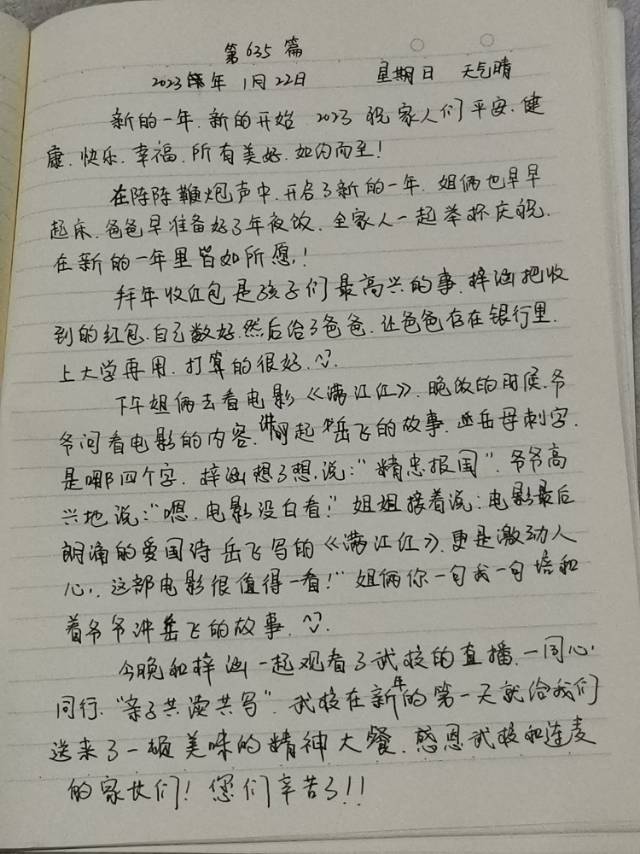 第635篇
2023年 1月22日 星期日 天气晴
新的一年.新的开始 2023 祝家人们平安.健
康.快乐.幸福.所有美好.如约而至!
在阵阵鞭炮声中.开启了新的一年.姐俩也早早
起床.爸爸早准备好了年夜饭.全家人一起举杯庆祝.
在新的一年里皆如所愿.!
拜年收红包是孩子们最高兴的事.梓涵把收
到的红包.自己数好.然后给了爸爸.让爸爸存在银行里.
上大学再用.打算的很好.
下午姐俩去看电影《满江红》.晚饭的时候.爷
爷问看电影的内容.讲起岳飞的故事.岳母刺字.
是哪四个字.梓涵想了想.说:“精忠报国”.爷爷高
兴地说:“嗯.电影没白看!”姐姐接着说:电影最后
朗诵的爱国诗岳飞写的《满江红》.更是激动人
心.这部电影很值得一看!”姐俩你一句我一句 和
着爷爷讲岳飞的故事.
今晚和梓涵一起观看了武校的直播.一同心.
同行.“亲子共读共写”.武校在新年的第一天就给我们
送来了一顿美味的精神大餐.感恩武校和连麦
的家长们!您们辛苦了!!